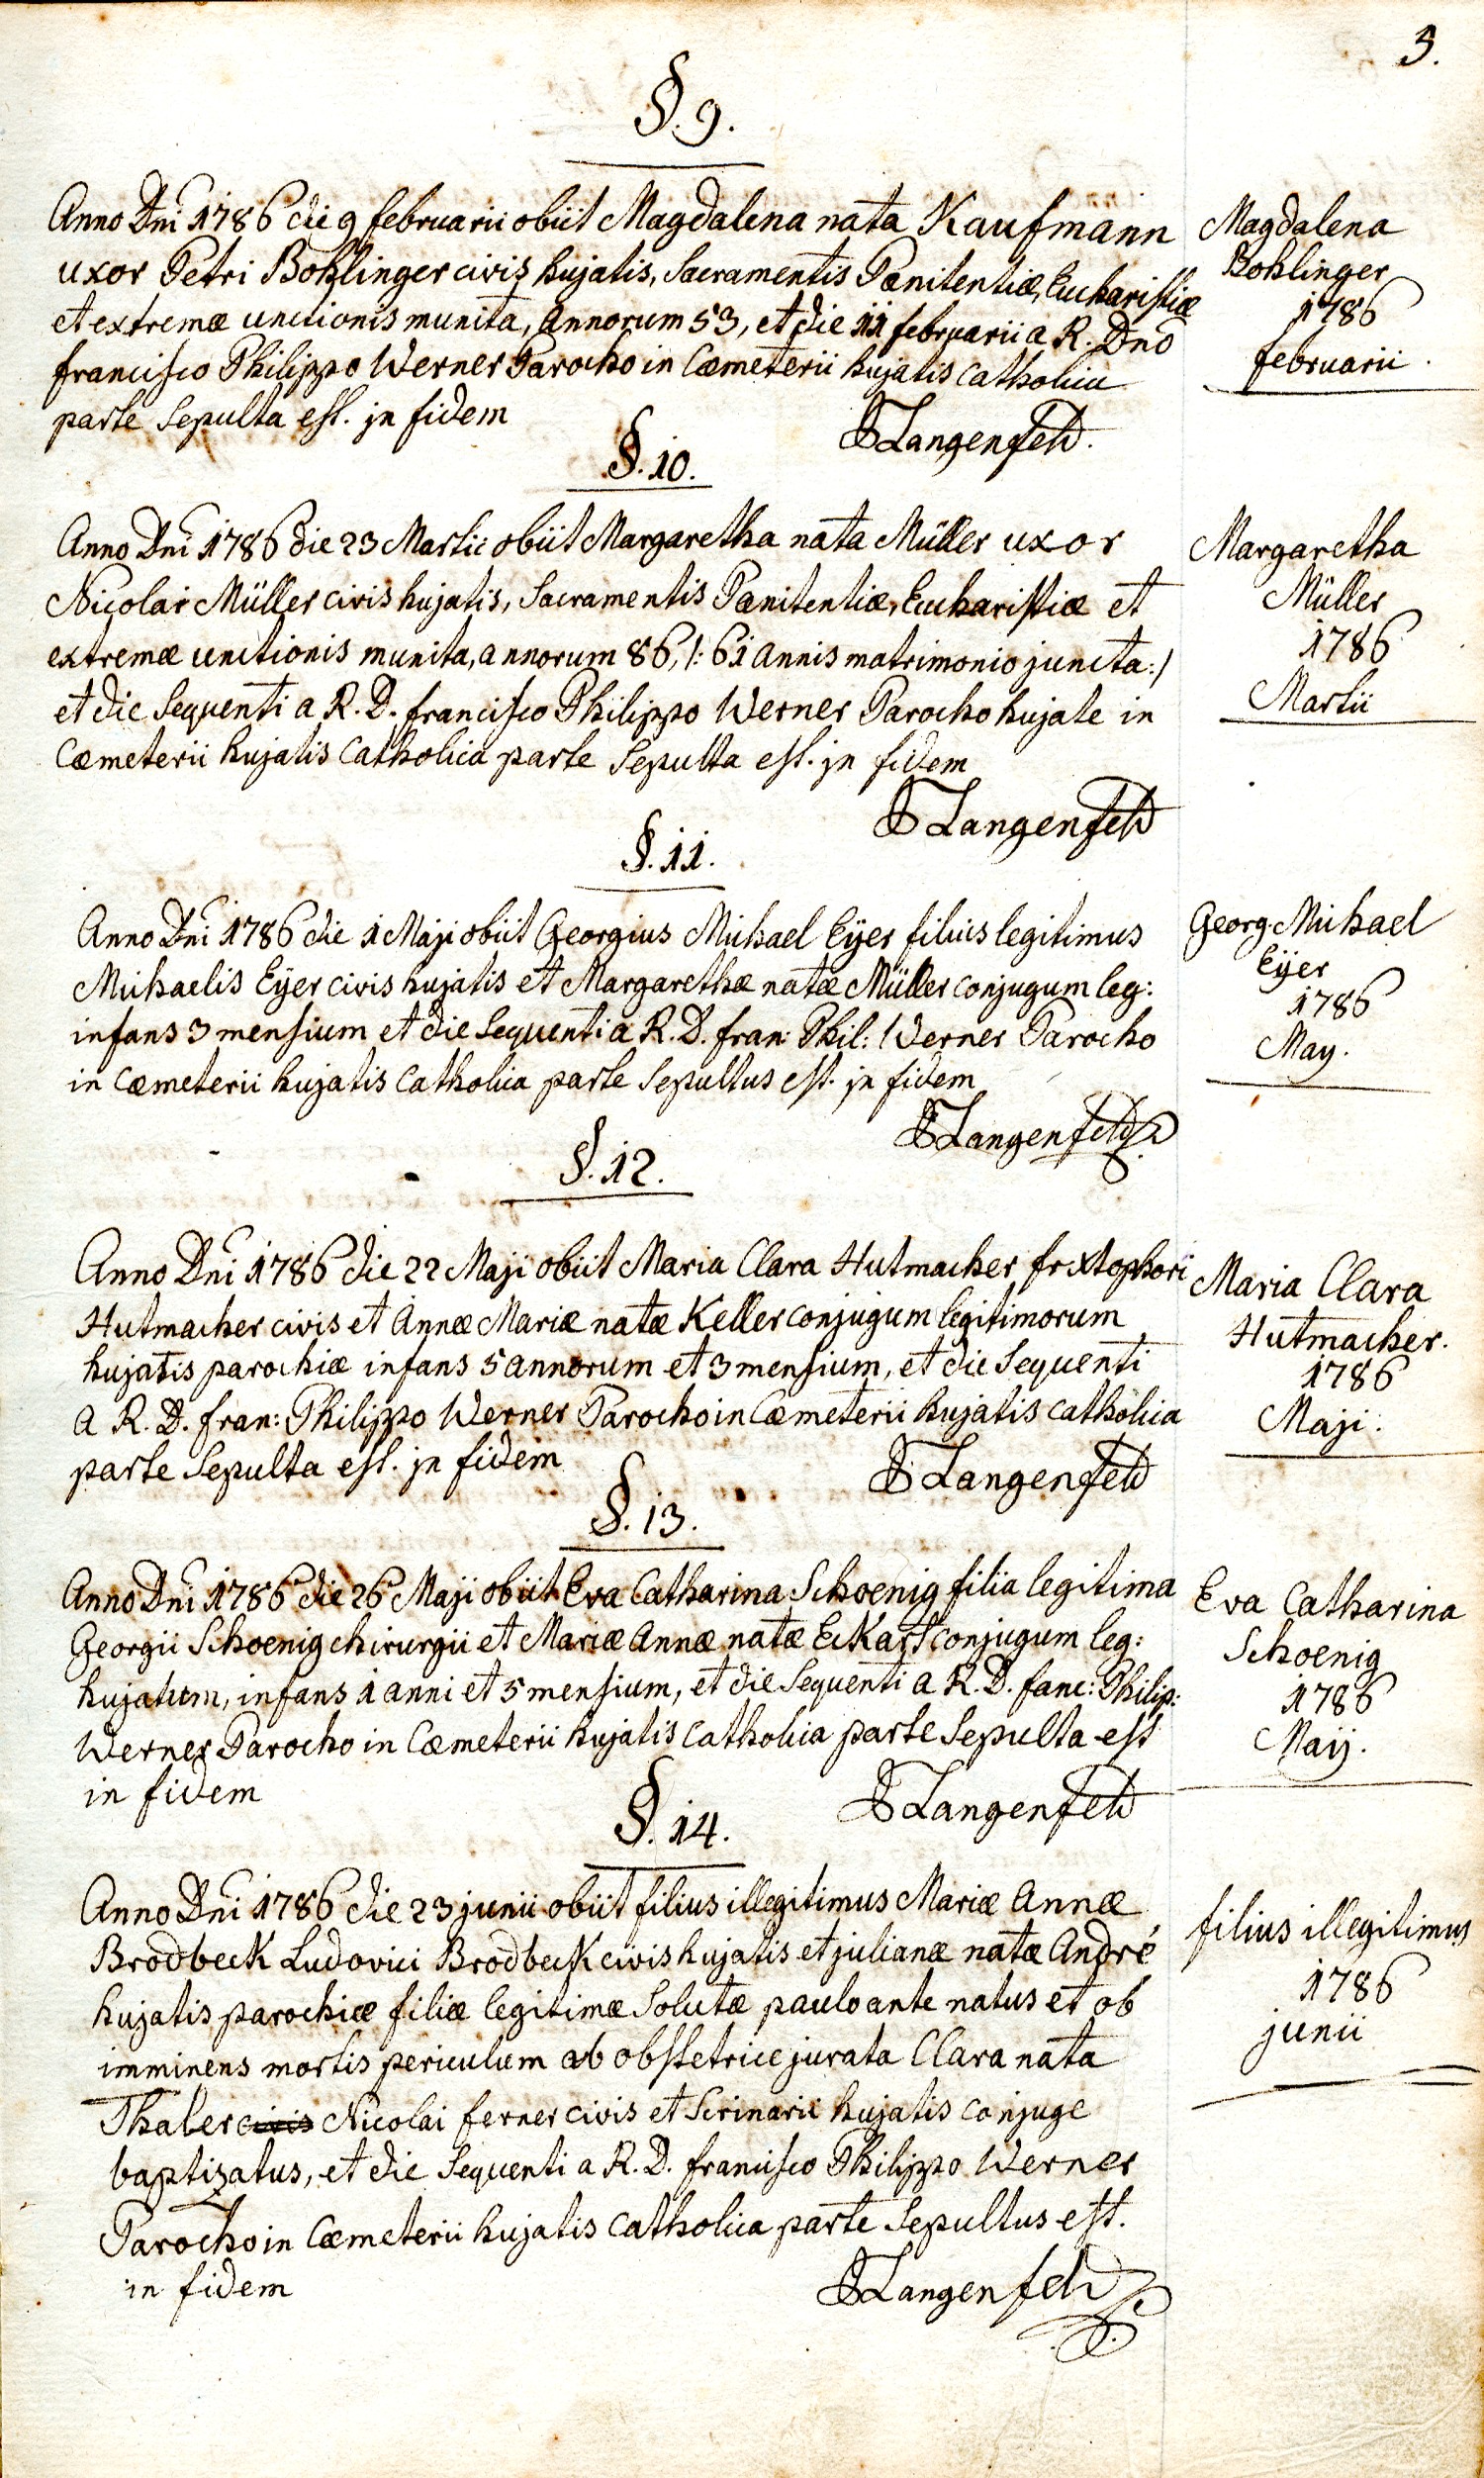 3.
§. 9.
Anno Dni 1786 die 9 februarii obiit Magdalena nata Kaufmann
uxor Petri Bohlinger civis hujatis, Sacramentis Pœnitentiæ, Eucharistiæ
et extremæ unctionis munita, annorum 53, et die 11 februarii a R. Dno
francisco Philippo Werner Parocho in Cæmeterii hujatis catholica
parte Sepulta est. jn fidem
Langenfeld.
Magdalena
Bohlinger
1786
februarii
§. 10.
Anno Dni 1786 die 23 Martii obiit Margaretha nata Müller uxor
Nicolai Müller civis hujatis, Sacramentis Pœnitentiæ, Eucharistiæ et
extremæ unctionis munita, annorum 86, /: 61 annis matrimonio juncta :/
et die Sequenti a R. D. francisco Philippo Werner Parocho hujate in
Cæmeterii hujatis Catholica parte Sepulta est. jn fidem
Langenfeld
Margaretha
Müller
1786
Martii
§. 11.
Anno Dni 1786 die 1 Maji obiit Georgius Michael Eÿer filius legitimus
Michaelis Eÿer civis hujatis et Margarethæ natæ Müller conjugum leg:
infans 3 mensium et die Sequenti a R. D. fran: Phil: Werner Parocho
in Cæmeterii hujatis Catholica parte Sepultus est. jn fidem
Langenfeld
Georg Michael
Eÿer
1786
May.
§. 12.
Anno Dni 1786 die 22 Maji obiit Maria Clara Hutmacher
Hutmacher civis et Annæ Mariæ natæ Keller conjugum legitimorum
hujatis parochiæ infans 5 annorum et 3 mensium, et die Sequenti
a R. D. fran: Philippo Werner Parocho in Cæmeterii hujatis catholica
parte Sepulta est. jn fidem
Langenfeld
Maria Clara
Hutmacher.
1786
Maji.
§. 13.
Anno Dni 1786 die 26 Maji obiit Eva Catharina Schoenig filia legitima
Georgii Schoenig chirurgii et Mariæ Annæ natæ Eckart conjugum leg:
hujatum, infans 1 anni et 5 mensium, et die Sequenti a R. D. fanc: Philip:
Werner Parocho in Cæmeterii hujatis Catholica parte Sepulta est
in fidem
Langenfeld
Eva Catharina
Schoenig
1786
Maÿ.
§. 14.
Anno Dni 1786 die 23 junii obiit filius illegitimus Mariæ Annæ
Brodbeck Ludovici Brodbeck civis hujatis et julianæ natæ André
hujatis parochiæ filiæ legitimæ Solutæ paulo ante natus et ob
imminens mortis periculum ab obstetrice jurata Clara nata
Thaler civis Nicolai ferner civis et Scrinarii hujatis conjuge
baptizatus, et die Sequenti a R. D. francisco Philippo Werner
Parocho in Cæmeterii hujatis catholica parte Sepultus est.
in fidem
Langenfeld
filius illegitimus
1786
junii